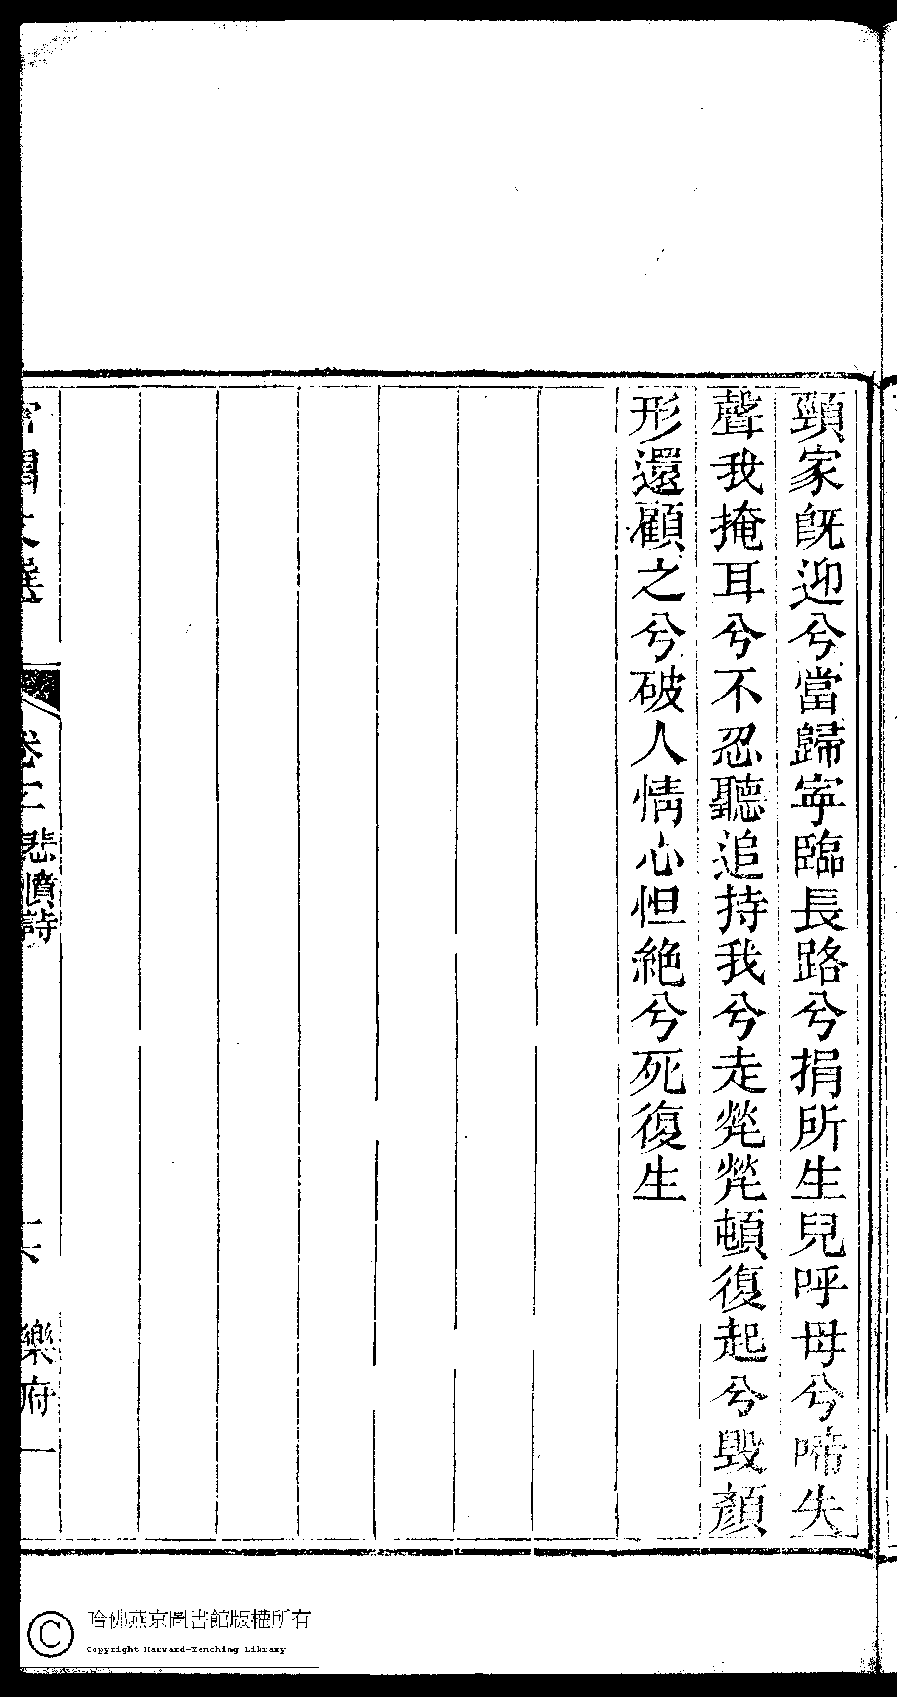 頸家旣迎兮當歸寜臨長路兮捐所生兒呼母兮啼失
聲我掩耳兮不忍聽追持我兮走煢煢頓復起兮毁顏
形還顧之兮破人情心怛絶兮死復生
宮閨文選
卷二 悲憤詩
樂府一
哈佛燕京圖書館版權所有
Copyright Harvard-Yenching Library